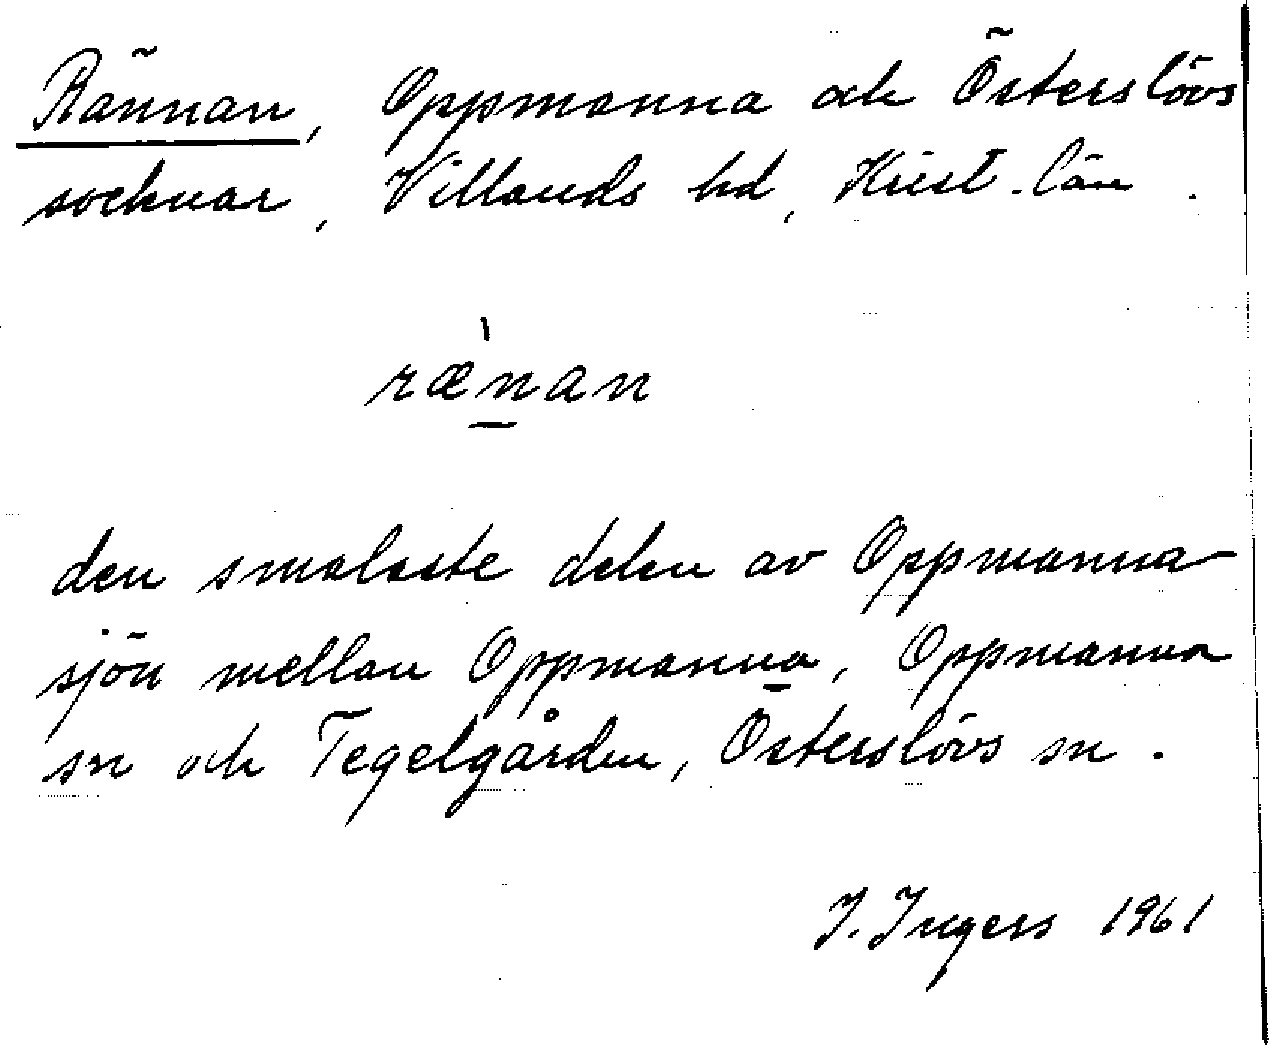 Rännan, Oppmanna och Österslövs
socknar, Villands hd, Krist. län.
ræ̀nan
den smalaste delen av Oppmanna-
sjön mellan Oppmanna, Oppmanna
sn och Tegelgården, Österslövs sn.
I. Ingers 1961